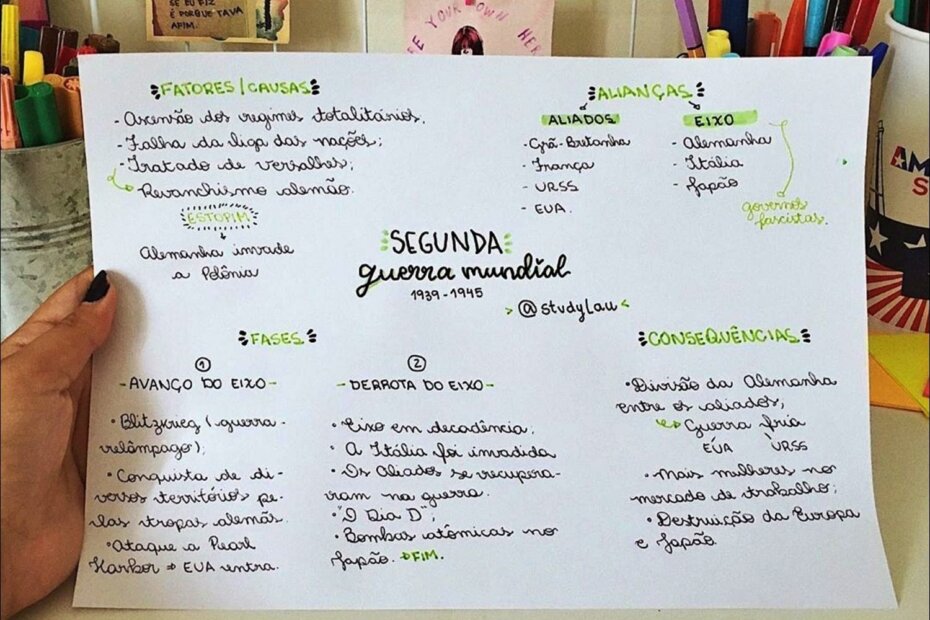 SE EU FIZ
É PORQUE TAVA
AFIM.
YOUR OWN
FATORES/CAUSAS
- Ascensão dos regimes totalitários;
- Falha da liga das nações;
- Tratado de versalhes;
Revanchismo alemão.
ESTOPIM
Alemanha invade
a Polônia
ALIANÇAS
ALIADOS
- Grã-Bretanha
- França
- URSS
- EUA.
EIXO
- Alemanha
- Itália
- Japão
governos
fascistas.
SEGUNDA
guerra mundial
1939-1945
> @studylau <
FASES
1
- AVANÇO DO EIXO -
• Blitzkrieg (guerra-
relâmpago);
• Conquista de di-
versos territórios pe-
las tropas alemãs.
• Ataque a Pearl
Harbor ⇒ EUA entra.
2
- DERROTA DO EIXO -
• Eixo em decadência;
• A Itália foi invadida
• Os Aliados se recupera-
ram na guerra.
• "O Dia D";
• Bombas atômicas no
Japão. ⇒ FIM.
CONSEQUÊNCIAS
• Divisão da Alemanha
entre os aliados;
Guerra fria
EUA URSS
• Mais mulheres no
mercado de trabalho;
• Destruição da Europa
e Japão.